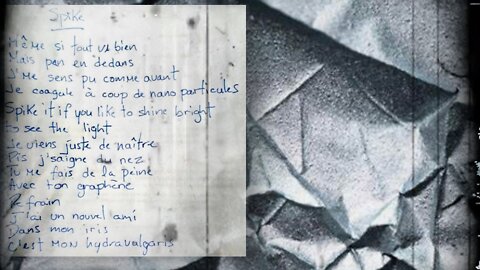 Spike
Même si tout va bien
Mais pen en dedans
J'me sens pu comme avant
Je coagule à coup de nano particules
Spike it if you like to shine bright
to see the light
Je viens juste de naître
Pis j'saigne du nez
Tu me fais de la peine
Avec ton graphène
Refrain
J'ai un nouvel ami
Dans mon iris
C'est MON hydravulgaris